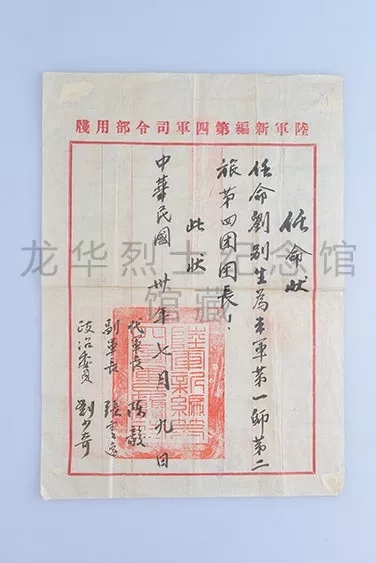 陸軍新編第四軍司令部用牋
任命狀
任命劉别生為本軍第一師第二
旅第四团团長!
此狀
中華民國卅年七月九日
代軍長 陳毅
副軍長 張雲逸
政治委員 劉少奇
龙华烈士纪念馆
馆藏